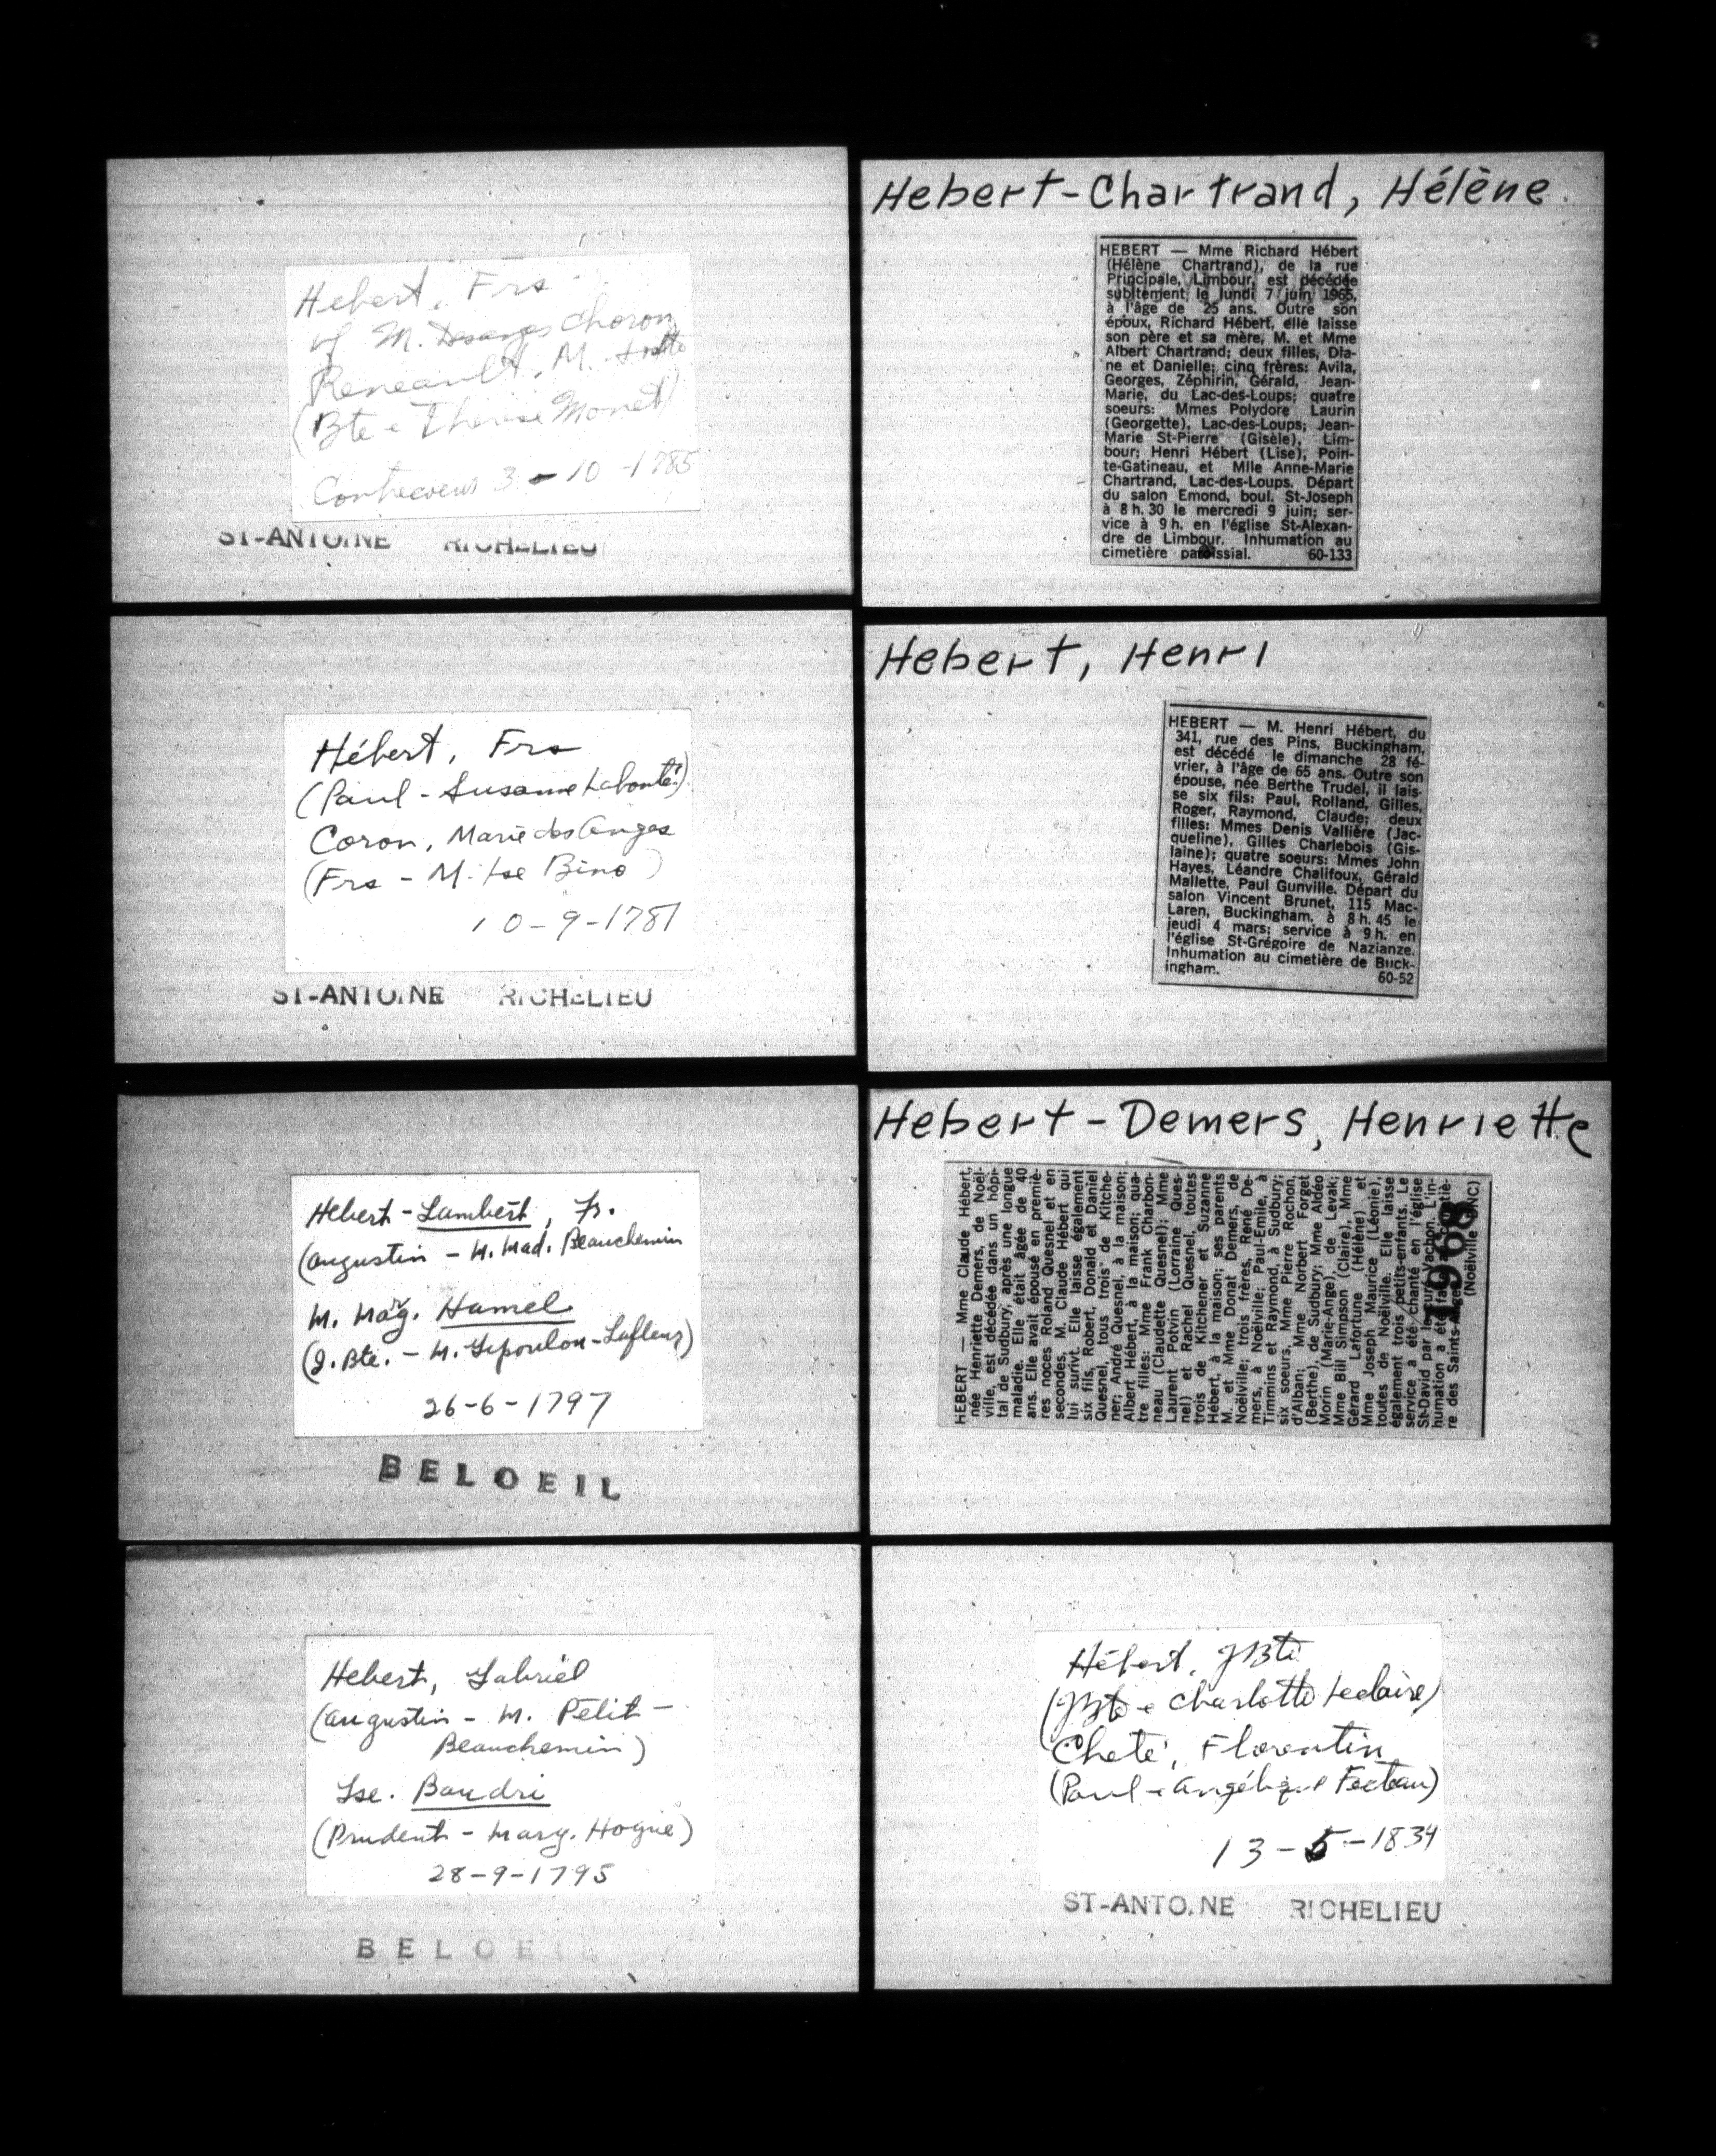 Hebert, Frs
vf M. Desanges Choron
Reneault, M.
(Bte - Therese Monet)
Contrecoeur 3 - 10 - 1785
ST-ANTOINE RICHELIEU
Hébert, Frs
(Paul - Susanne Labonté)
Coron, Marie des Anges
(Frs - M. Jse Bino)
10-9-1781
ST-ANTOINE RICHELIEU
Hebert-Lambert, Fr.
(Augustin - M. Mad. Beauchemin
M. Marg. Hamel
(J. Bte. - M. Lepoulon-Lafleur)
26-6-1797
BELOEIL
Hebert, Gabriel
(Augustin - M. Petit-
Beauchemin)
Jse. Baudri
(Prudent - Marg. Hogue)
28-9-1795
BELOEIL
Hebert-Chartrand, Hélène
HEBERT — Mme Richard Hébert
(Hélène Chartrand), de la rue
Principale, Limbour, est décédée
subitement le lundi 7 juin 1965,
à l'âge de 25 ans. Outre son
époux, Richard Hébert, elle laisse
son père et sa mère, M. et Mme
Albert Chartrand; deux filles, Dia-
ne et Danielle; cinq frères: Avila,
Georges, Zéphirin, Gérald, Jean-
Marie, du Lac-des-Loups; quatre
soeurs: Mmes Polydore Laurin
(Georgette), Lac-des-Loups; Jean-
Marie St-Pierre (Gisèle), Lim-
bour; Henri Hébert (Lise), Poin-
te-Gatineau, et Mlle Anne-Marie
Chartrand, Lac-des-Loups. Départ
du salon Emond, boul. St-Joseph
à 8 h. 30 le mercredi 9 juin; ser-
vice à 9 h. en l'église St-Alexan-
dre de Limbour. Inhumation au
cimetière paroissial. 60-133
Hebert, Henri
HEBERT — M. Henri Hébert, du
341, rue des Pins, Buckingham,
est décédé le dimanche 28 fé-
vrier, à l'âge de 65 ans. Outre son
épouse, née Berthe Trudel, il lais-
se six fils: Paul, Rolland, Gilles,
Roger, Raymond, Claude; deux
filles: Mmes Denis Vallière (Jac-
queline), Gilles Charlebois (Gis-
laine); quatre soeurs: Mmes John
Hayes, Léandre Chalifoux, Gérald
Mallette, Paul Gunville. Départ du
salon Vincent Brunet, 115 Mac-
Laren, Buckingham, à 8 h. 45 le
jeudi 4 mars; service à 9 h. en
l'église St-Grégoire de Nazianze.
Inhumation au cimetière de Buck-
ingham. 60-52
Hebert-Demers, Henriette
HEBERT — Mme Claude Hébert,
née Henriette Demers, de Noël-
ville, est décédée dans un hôpi-
tal de Sudbury, après une longue
maladie. Elle était âgée de 40
ans. Elle avait épousé en premiè-
res noces Rolland Quesnel et en
secondes, M. Claude Hébert qui
lui survit. Elle laisse également
six fils, Robert, Donald et Daniel
Quesnel, tous trois de Kitche-
ner; André Quesnel, à la maison;
Albert Hébert, à la maison; qua-
tre filles: Mme Frank Charbon-
neau (Claudette Quesnel); Mme
Laurent Potvin (Lorraine Ques-
nel) et Rachel Quesnel, toutes
trois de Kitchener et Suzanne
Hébert, à la maison; ses parents
M. et Mme Donat Demers, de
Noëlville; trois frères, René De-
mers, à Noëlville; Paul-Emile, à
Timmins et Raymond, à Sudbury;
six soeurs, Mme Pierre Rochon,
d'Alban; Mme Norbert Forget
(Berthe), de Sudbury; Mme Aldéo
Morin (Marie-Ange), de Levak;
Mme Bill Simpson (Claire), Mme
Gérard Lafortune (Hélène) et
Mme Joseph Maurice (Léonie),
toutes de Noëlville. Elle laisse
également trois petits-enfants. Le
service a été chanté en l'église
St-David par le curé Vachon. L'in-
humation a été faite au cimetiè-
re des Saints-Anges
(Noëlville DNC)
1968
Hébert, JBte
(JBte - Charlotte Leclaire)
Cheté, Florentin
(Paul - Angélique Fecteau)
13-5-1834
ST-ANTOINE RICHELIEU